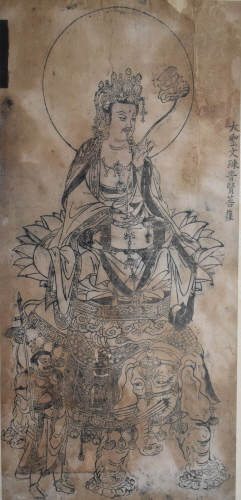 大聖文殊普賢菩薩